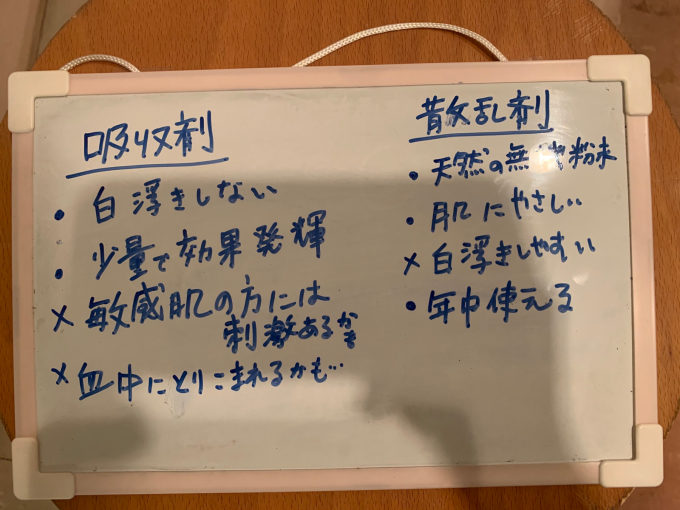 吸収剤
・白浮きしない
・少量で効果発揮
×敏感肌の方には
刺激あるかも
×血中にとりこまれるかも…
散乱剤
・天然の無機粉末
・肌にやさしい
×白浮きしやすい
・年中使える